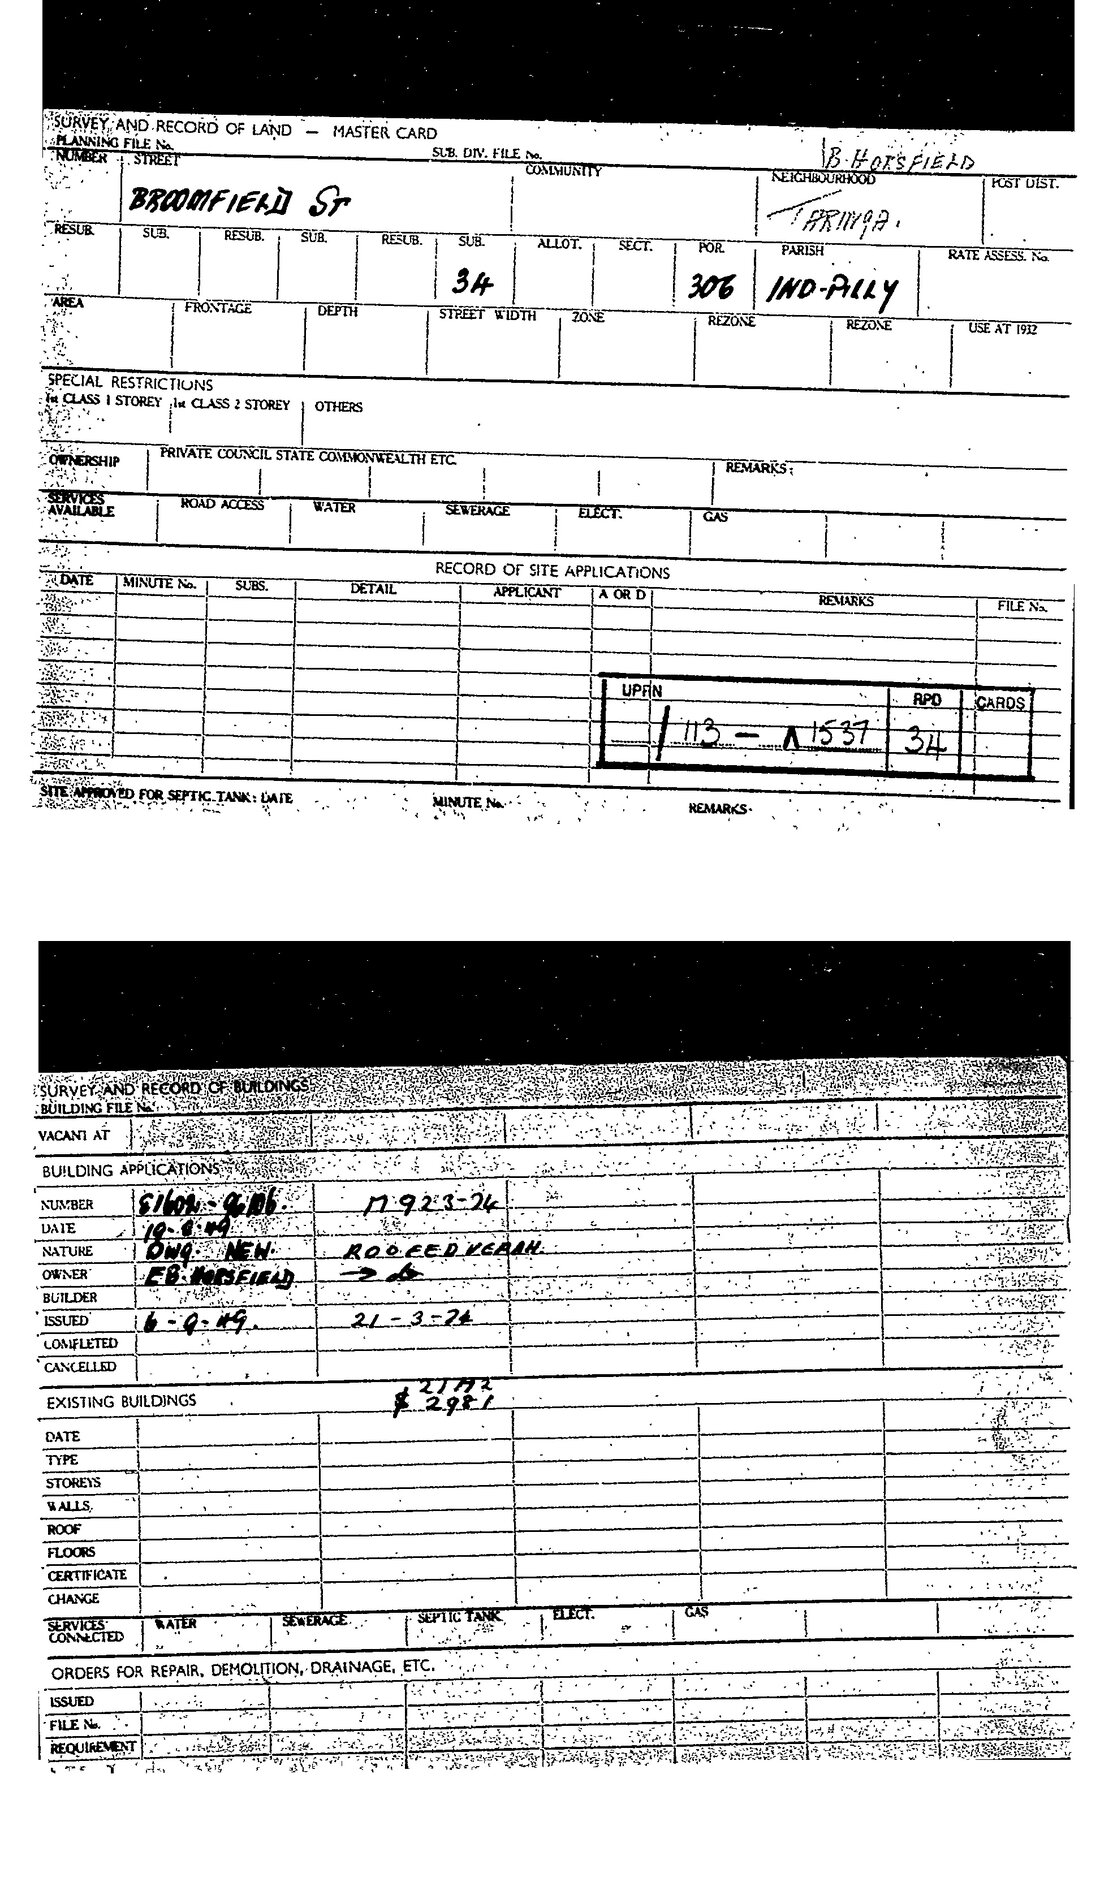 SURVEY AND RECORD OF LAND — MASTER CARD
PLANNING FILE No. SUB. DIV. FILE No. B. HORSFIELD
NUMBER STREET COMMUNITY NEIGHBOURHOOD POST DIST.
BROOMFIELD ST TARINGA.
RESUB. SUB. RESUB. SUB. RESUB. SUB. ALLOT. SECT. POR. PARISH RATE ASSESS. No.
34 306 IND-PILLY
AREA FRONTAGE DEPTH STREET WIDTH ZONE REZONE REZONE USE AT 1932
SPECIAL RESTRICTIONS
1st CLASS 1 STOREY 1st CLASS 2 STOREY OTHERS
OWNERSHIP PRIVATE COUNCIL STATE COMMONWEALTH ETC. REMARKS:
SERVICES AVAILABLE ROAD ACCESS WATER SEWERAGE ELECT. GAS
RECORD OF SITE APPLICATIONS
DATE MINUTE No. SUBS. DETAIL APPLICANT A OR D REMARKS FILE No.
UPRN RPD CARDS
/ 113 — 1537 34
SITE APPROVED FOR SEPTIC TANK: DATE MINUTE No. REMARKS
SURVEY AND RECORD OF BUILDINGS
BUILDING FILE No.
VACANT AT
BUILDING APPLICATIONS
NUMBER M923-74
DATE
NATURE DWG. NEW. ROOFED VERAH.
OWNER EB. HORSFIELD → do
BUILDER
ISSUED 6-9-49. 21-3-74
COMPLETED
CANCELLED
EXISTING BUILDINGS $ 2981
DATE
TYPE
STOREYS
WALLS
ROOF
FLOORS
CERTIFICATE
CHANGE
SERVICES CONNECTED WATER SEWERAGE SEPTIC TANK ELECT. GAS
ORDERS FOR REPAIR, DEMOLITION, DRAINAGE, ETC.
ISSUED
FILE No.
REQUIREMENT